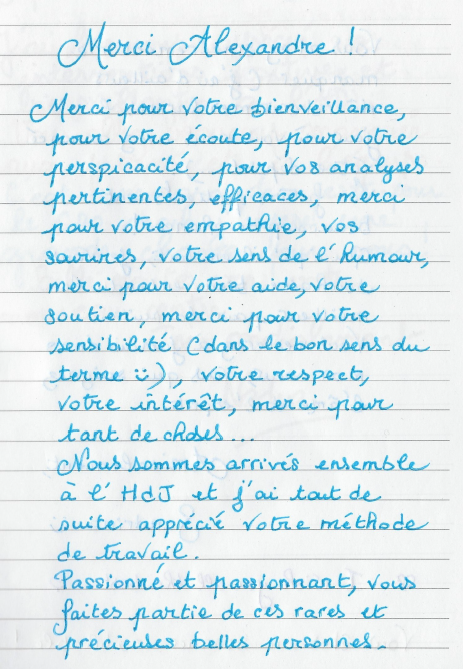 Merci Alexandre !
Merci pour votre bienveillance,
pour votre écoute, pour votre
perspicacité, pour vos analyses
pertinentes, efficaces, merci
pour votre empathie, vos
sourires, votre sens de l'humour,
merci pour votre aide, votre
soutien, merci pour votre
sensibilité (dans le bon sens du
terme :)), votre respect,
votre intérêt, merci pour
tant de choses...
Nous sommes arrivés ensemble
à l'HdJ et j'ai tout de
suite apprécié votre méthode
de travail.
Passionné et passionnant, vous
faites partie de ces rares et
précieuses belles personnes.